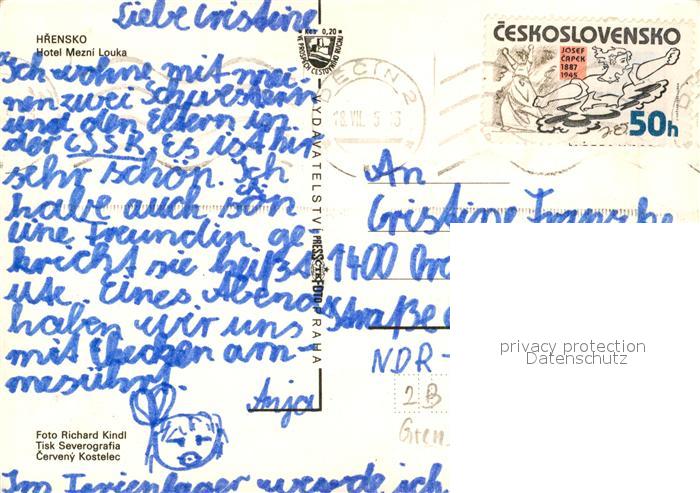 Liebe Cristine
HŘENSKO
Hotel Mezní Louka
Ich wohne mit mei
nen zwei Schwestern
und den Eltern in
der ČSSR. Es ist hir
sehr schön. Ich
habe auch son
eine Freundin ge
kricht sie heißt
Ute Eines Abends
haben wir uns
mit Checken arm-
Anja
Foto Richard Kindl
Tisk Severografia
Červený Kostelec
Im Ferienlager werde ich
Kčs 0,20
VE PROSPĚCH CESTOVNÍHO RUCHU
VYDAVATELSTVÍ PRESSFOTO PRAHA
DĚČÍN 2
ČESKOSLOVENSKO
JOSEF
ČAPEK
1887
1945
50h
An
Cristine
1400
straße
NDR-
2B
privacy protection
Datenschutz